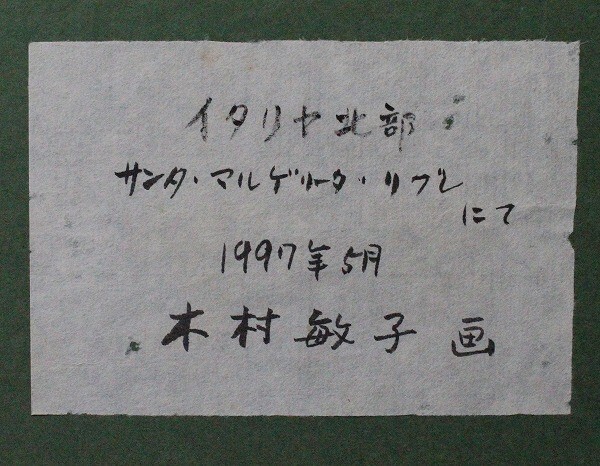 イタリヤ北部
サンタ・マルゲリータ・リブレ
にて
1997年5月
木村敏子 画